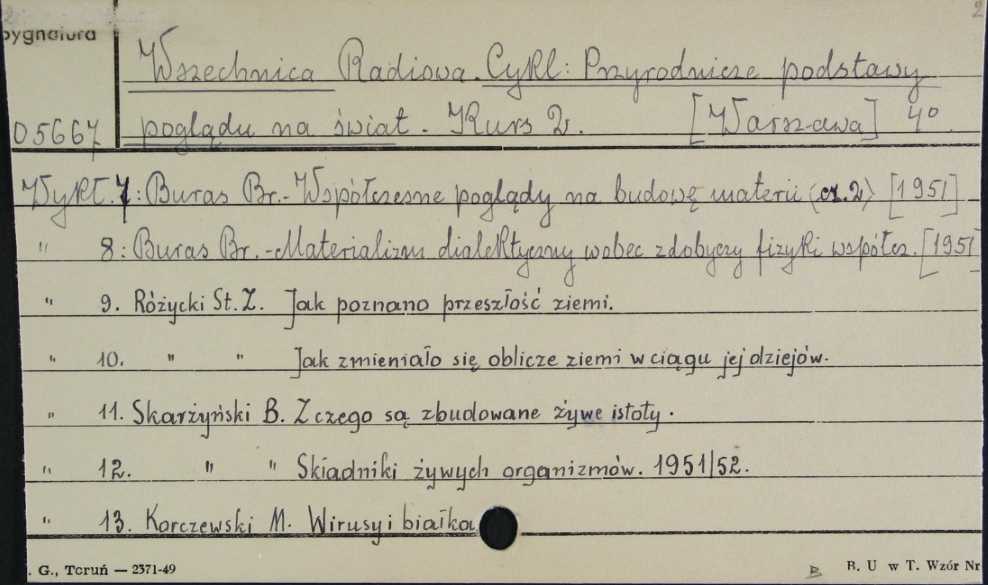 2
Sygnatura
Wszechnica Radiowa. Cykl: Przyrodnicze podstawy
05667 poglądu na świat. Kurs 2. [Warszawa] 4°
Wykł. 7: Buras Br.- Współczesne poglądy na budowę materii (cz. 2) [1951]
" 8: Buras Br. - Materializm dialektyczny wobec zdobyczy fizyki współcz. [1951
" 9. Różycki St. Z. Jak poznano przeszłość ziemi.
" 10. " " Jak zmieniało się oblicze ziemi w ciągu jej dziejów.
" 11. Skarżyński B. Z czego są zbudowane żywe istoty.
" 12. " " Składniki żywych organizmów. 1951/52.
" 13. Korczewski M. Wirusy i białka
. G., Toruń — 2371-49 B. U w T. Wzór Nr